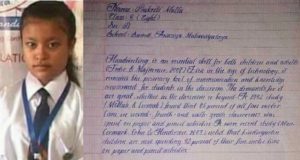 Name: Prakriti Malla
Class: 8 (Eight)
Sec: 'B'
School: Sainik Awasiya Mahavidyalaya
Handwriting is an essential skill for both children and adults
(Feder & Majnemer, 2007). Even in the age of technology, it
remains the primary tool of communication and knowledge
assessment for students in the classroom. The demands for it
are great, whether in the classroom or beyond. A 1992 study
(McHale & Cermak) found that 85 percent of all fine motor
time in second- and fourth-grade classrooms was
spent on paper and pencil activities. A more recent study (Marr,
Cermak, Cohn & Henderson 2003) noted that kindergarten
children are now spending 42 percent of their fine motor time
on paper and pencil activities.